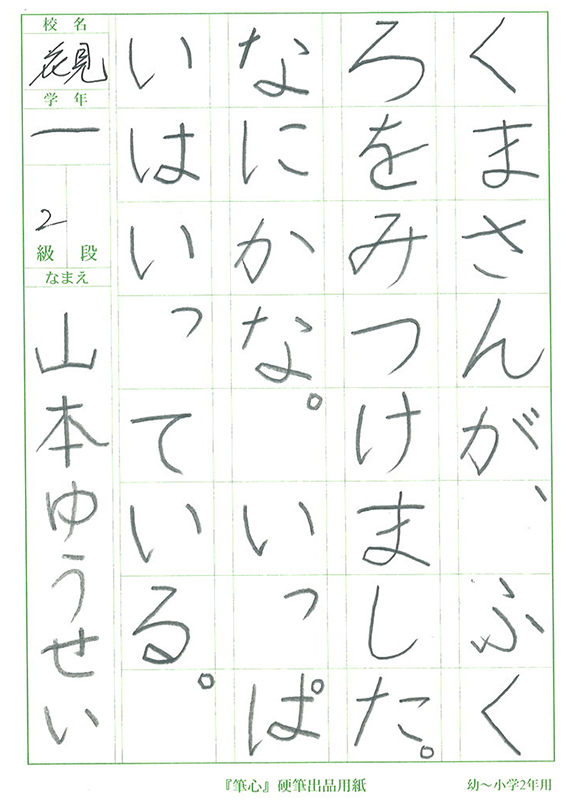 くまさんが、ふく
ろをみつけました。
なにかな。いっぱ
いはいっている。
校名
花見
学年
一
2
級段
なまえ
山本ゆうせい
『筆心』硬筆出品用紙
幼〜小学2年用